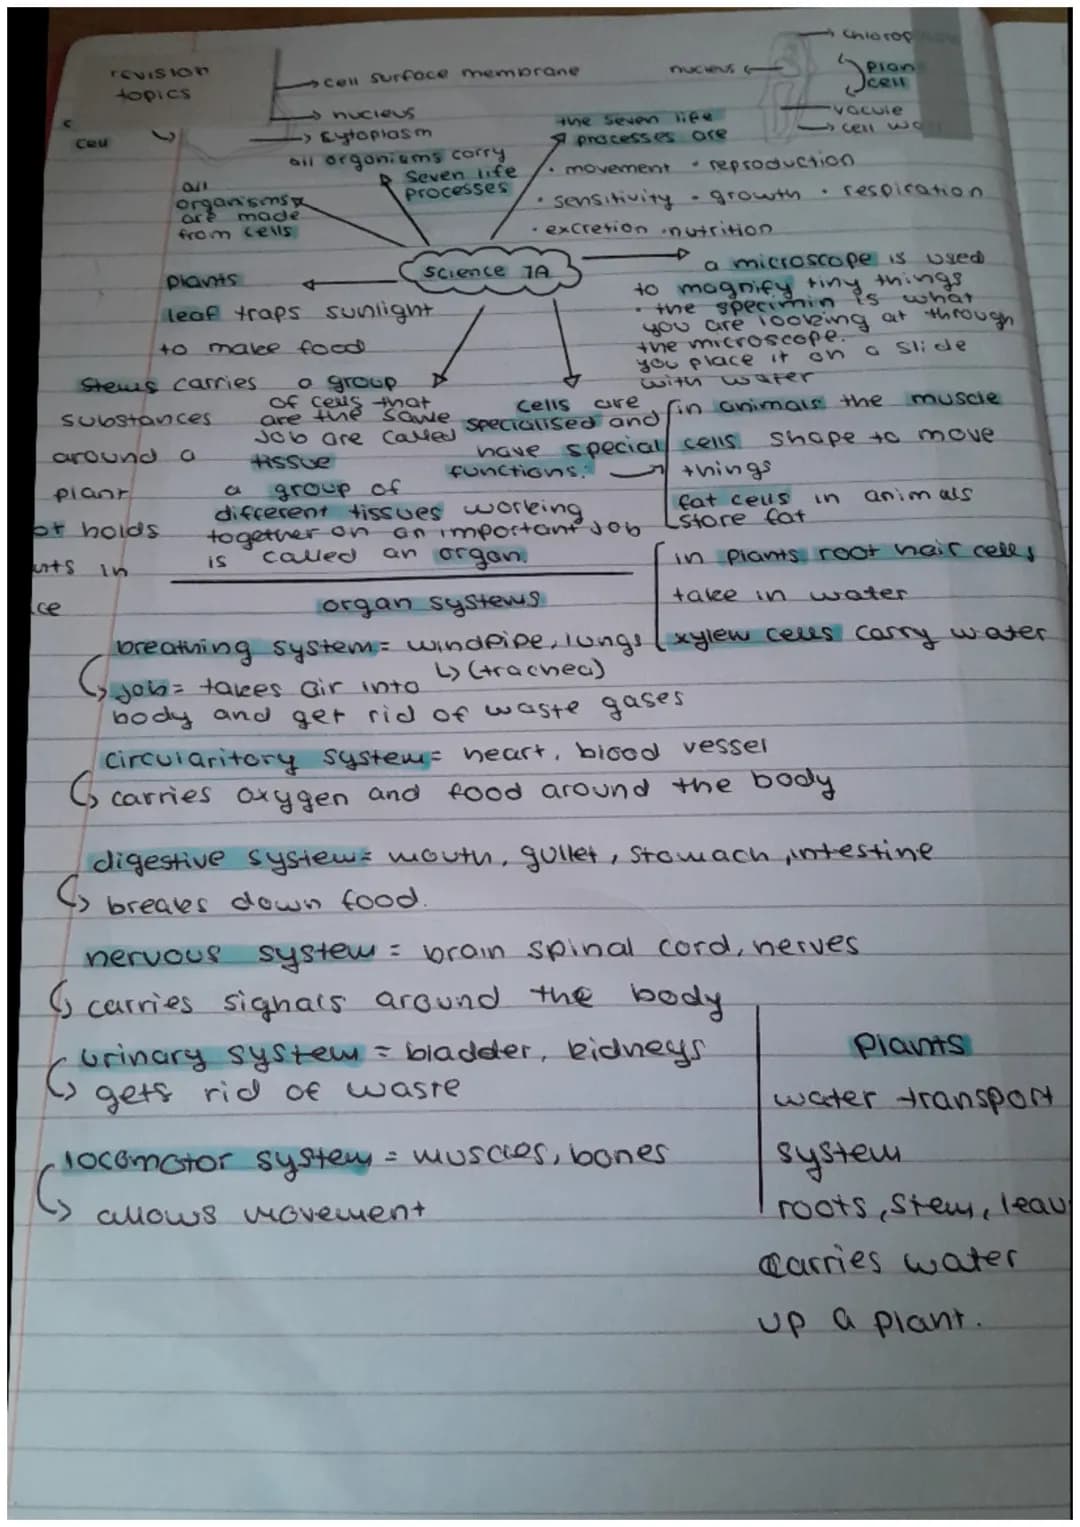 revision
topics
cell surface membrane
nucleus
cytoplasm
cell
nucleus
plan
cell
vacule
cell
all organisms carry
seven life
processes
the seven life
processes are
• movement • reproduction
• sensitivity • growth • respiration
• excretion • nutrition
all
organisms
are made
from cells
science 7A
plants
leaf traps sunlight
to make food
stems carries
substances
around a
plant
holds
in
a microscope is used
to magnify tiny things
• the specimin is what
you are looking at through
the microscope.
you place it on a slide
with water
a group
of cells that
are the same
job are called
tissue
a group of
different tissues working
together on an important job
is called an organ.
cells are
specialised and
have special
functions.
in animals the muscle
cells shape to move
things
fat cells in animals
store fat
in plants root hair cells
take in water
xylem cells carry water
organ systems
breathing system = windpipe, lungs
(trachea)
job = takes air into
body and get rid of waste gases
circularitory system = heart, blood vessel
carries oxygen and food around the body
digestive system = mouth, gullet, stomach, intestine
breaks down food.
nervous system = brain spinal cord, nerves
carries signals around the body
urinary system = bladder, kidneys
gets rid of waste
locomotor system = muscles, bones
allows movement
plants
water transport
system
roots, stem, leav
carries water
up a plant.